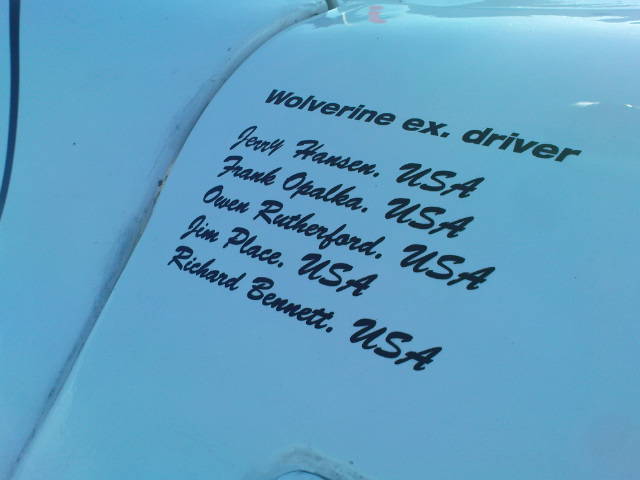 Wolverine ex. driver
Jerry Hansen. USA
Frank Opalka. USA
Owen Rutherford. USA
Jim Place. USA
Richard Bennett. USA